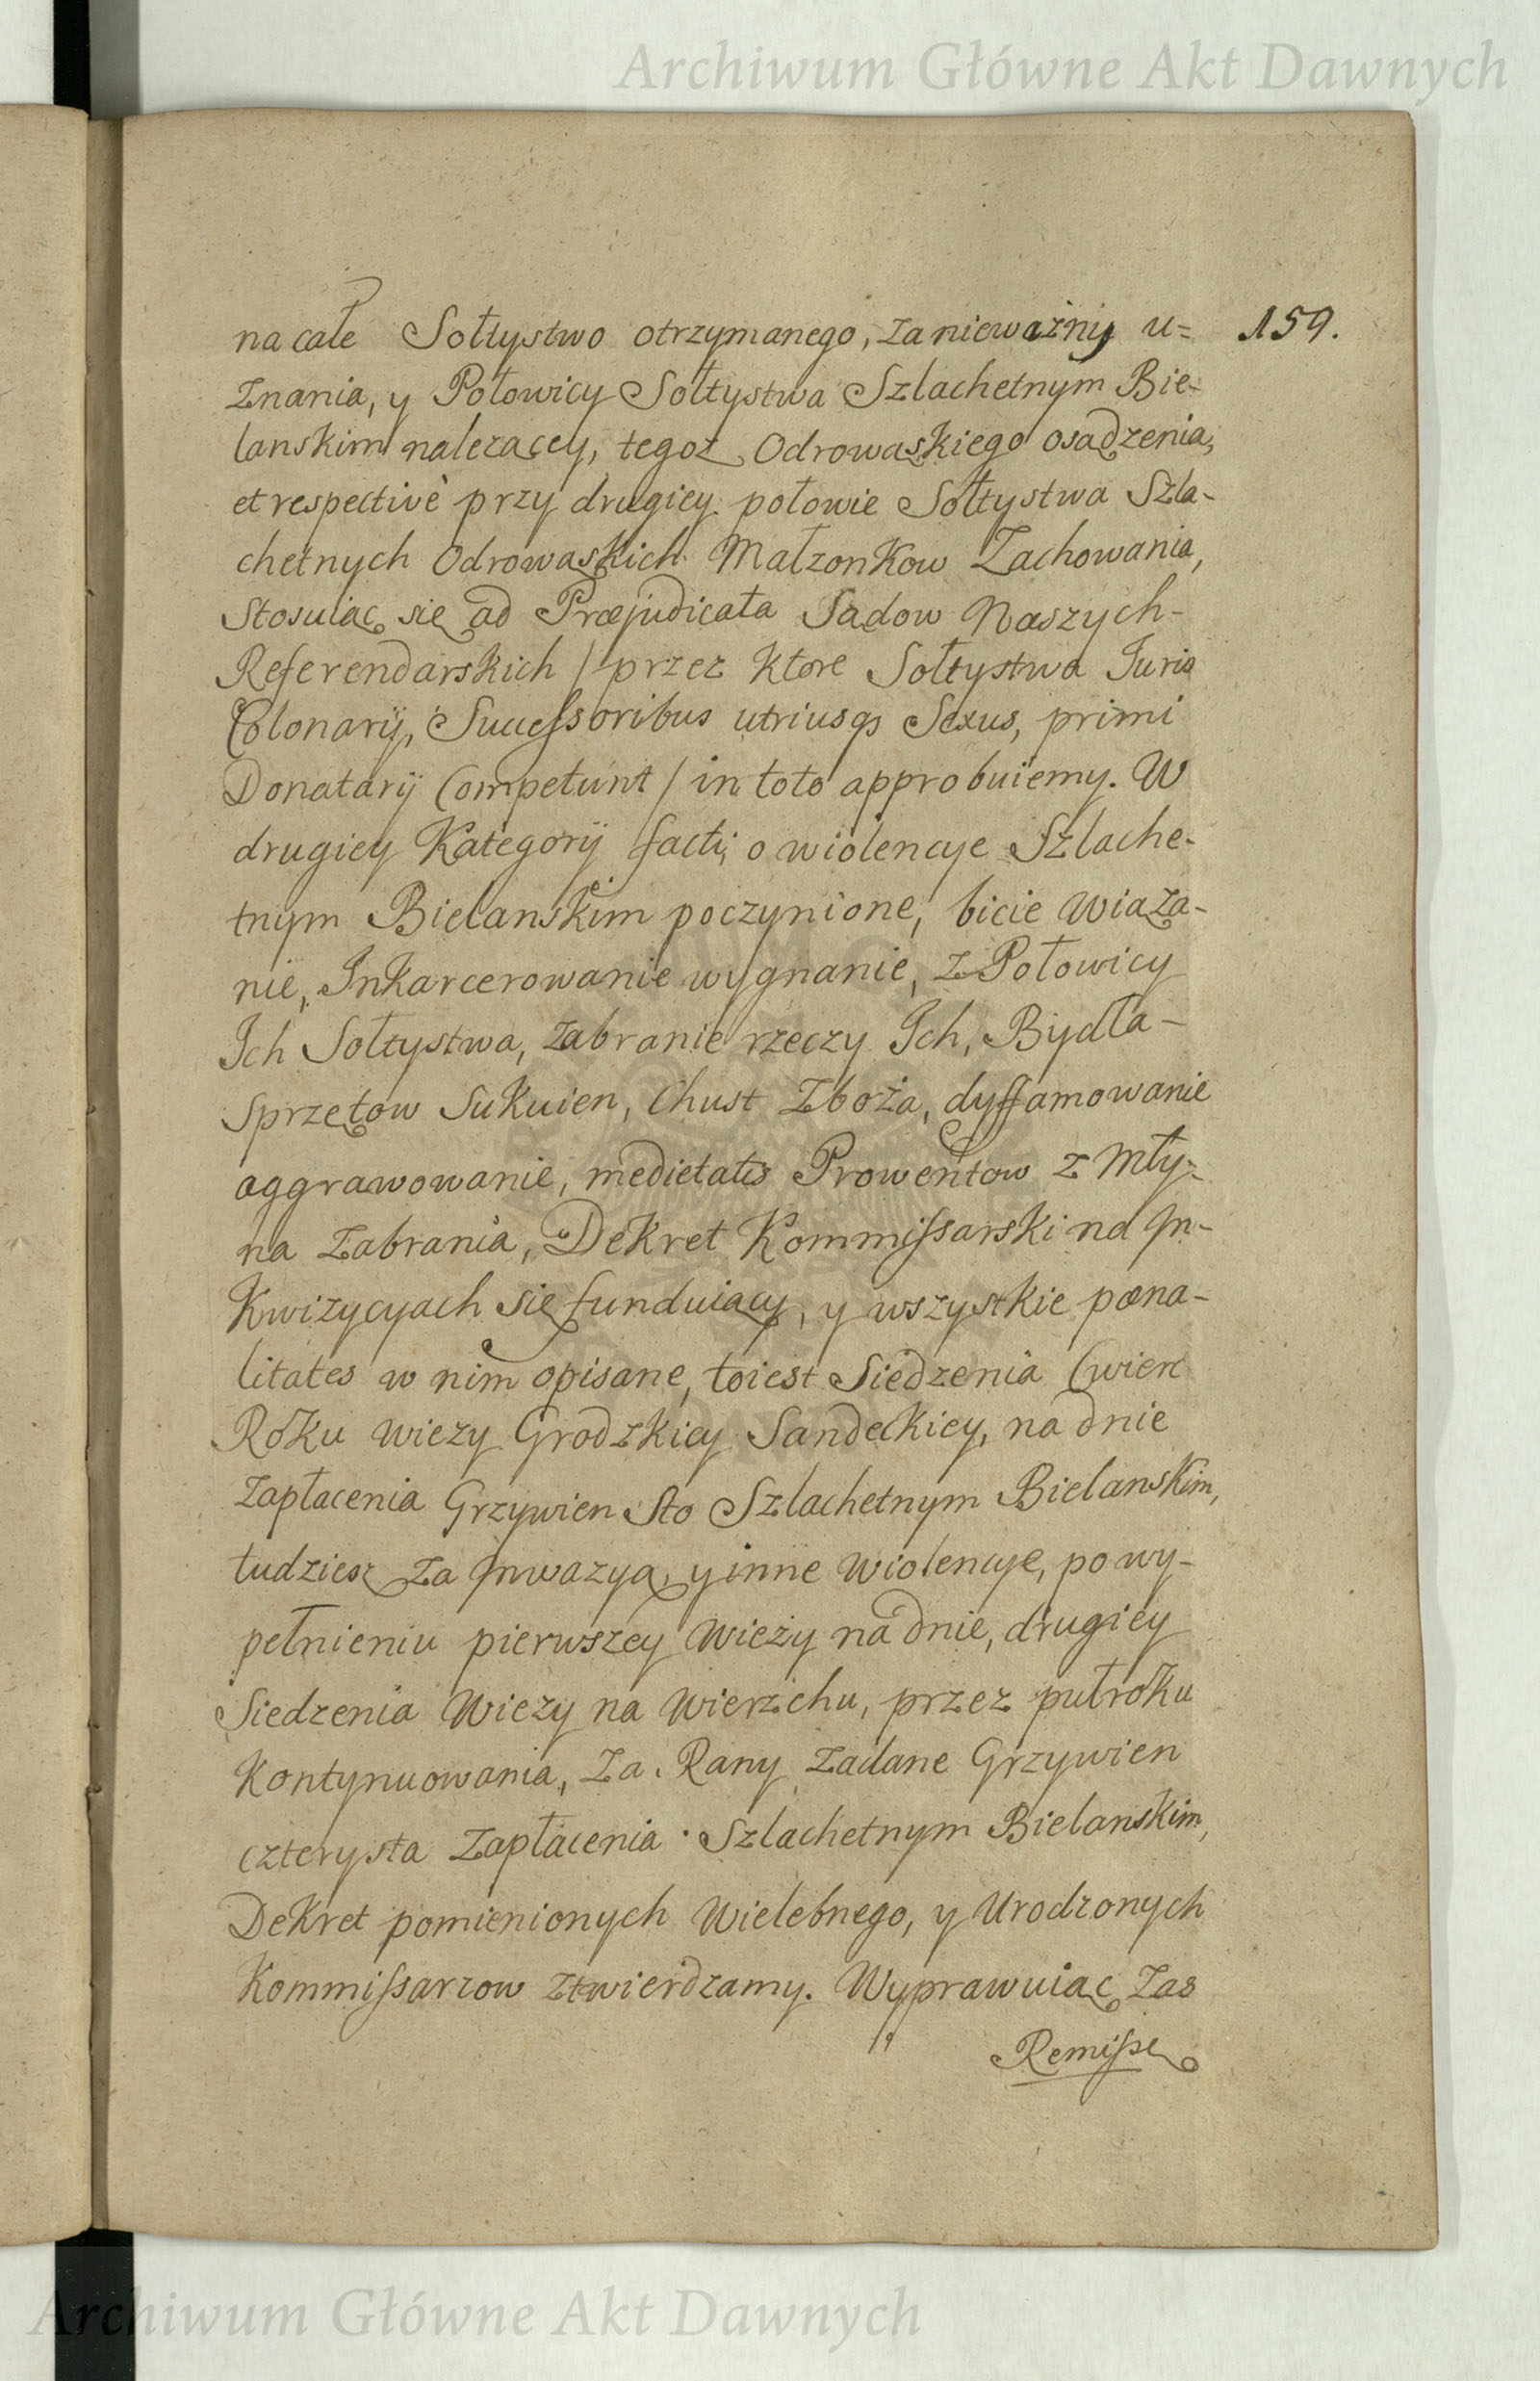 Archiwum Główne Akt Dawnych
159.
na całe Sołtystwo otrzymanego, za nieważny u=
znania, y Połowicy Sołtystwa Szlachetnym Bie-
lanskim nalezącey, tegoz Odrowąskiego osądzenia,
et respectivè przy drugiey połowie Sołtystwa Szla-
chetnych Odrowąskich Małzonkow Zachowania,
Stosuiąc się ad Præjudicata Sądow Naszych-
Referendarskich / przez ktore Sołtystwa Juris
Colonarÿ, Successoribus utriusqs Sexus, primi
Donatarÿ Competunt / in toto approbuiemy. W
drugiey Kategorÿ facti, o wiolencye Szlache-
tnym Bielanskim poczynione, bicie Wiąza-
nie, Inkarcerowanie wygnanie, z Połowicy
Ich Sołtystwa, zabranie rzeczy Ich, Bydła-
sprzętow Sukuien, Chust Zboża, dyffamowanie
aggrawowanie, medietatis Prowentow z Mły-
na Zabrania, Dekret Kommissarski na In-
kwizycyach się funduiący, y wszystkie pœna-
litates w nim opisane, toiest Siedzenia Cwierc
Roku wiezy Grodzkiey Sandeckiey, na dnie
Zapłacenia Grzywien Sto Szlachetnym Bielanskim,
tudziesz za Inwazyą, y inne Wiolencye, po wy-
pełnieniu pierwszey Wieży na dnie, drugiey
Siedzenia Wiezy na Wierzchu, przez pułroku
Kontynuowania, Za Rany Zadane Grzywien
czterysta Zapłacenia Szlachetnym Bielanskim,
Dekret pomienionych Wielebnego, y Urodzonych
Kommissarzow ztwierdzamy. Wyprawuiąc Zas
Remissę
Archiwum Główne Akt Dawnych